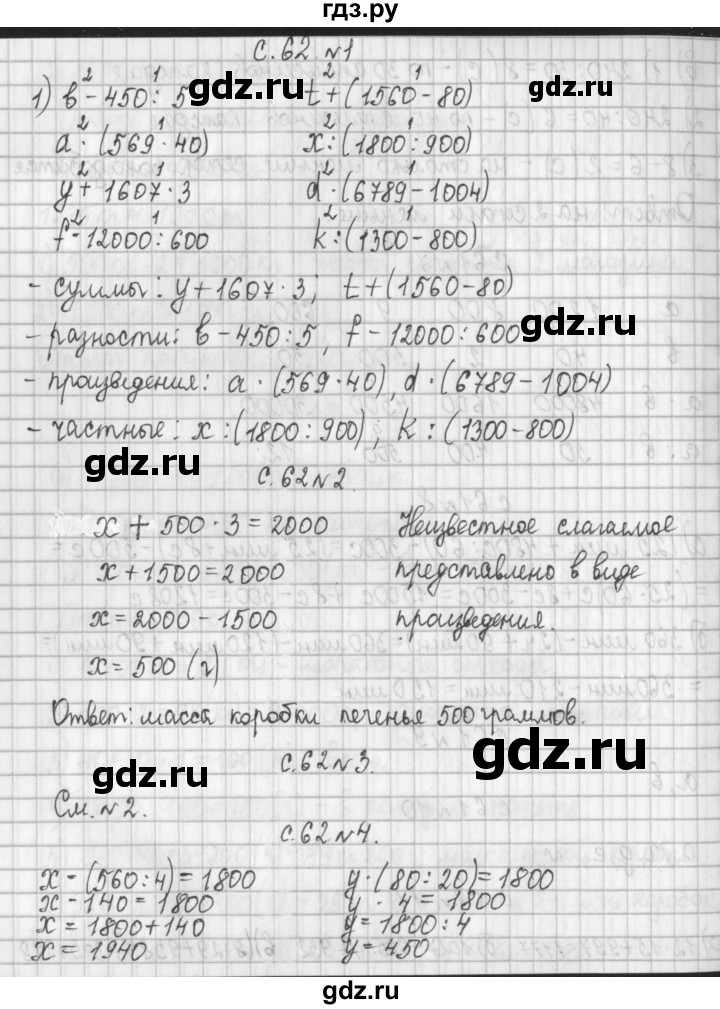 гдз.ру
с.62 №1
1) в - 450 : 5    t + (1560 - 80)
a · (569 · 40)    x : (1800 : 900)
y + 1607 · 3    d · (6789 - 1004)
f - 12000 : 600    k : (1300 - 800)
- суммы: y + 1607 · 3; t + (1560 - 80)
- разности: в - 450 : 5, f - 12000 : 600
- произведения: a · (569 · 40), d · (6789 - 1004)
- частные: x : (1800 : 900), k : (1300 - 800)
с.62 №2.
x + 500 · 3 = 2000    Неизвестное слагаемое
x + 1500 = 2000    представлено в виде
x = 2000 - 1500    произведения.
x = 500 (г)
Ответ: масса коробки печенья 500 граммов.
с.62 №3.
См. №2.
с.62 №4.
x - (560 : 4) = 1800    y · (80 : 20) = 1800
x - 140 = 1800    y · 4 = 1800
x = 1800 + 140    y = 1800 : 4
x = 1940    y = 450
gdz.ru
gdz.ru
gdz.ru
gdz.ru
gdz.ru
gdz.ru
gdz.ru
gdz.ru